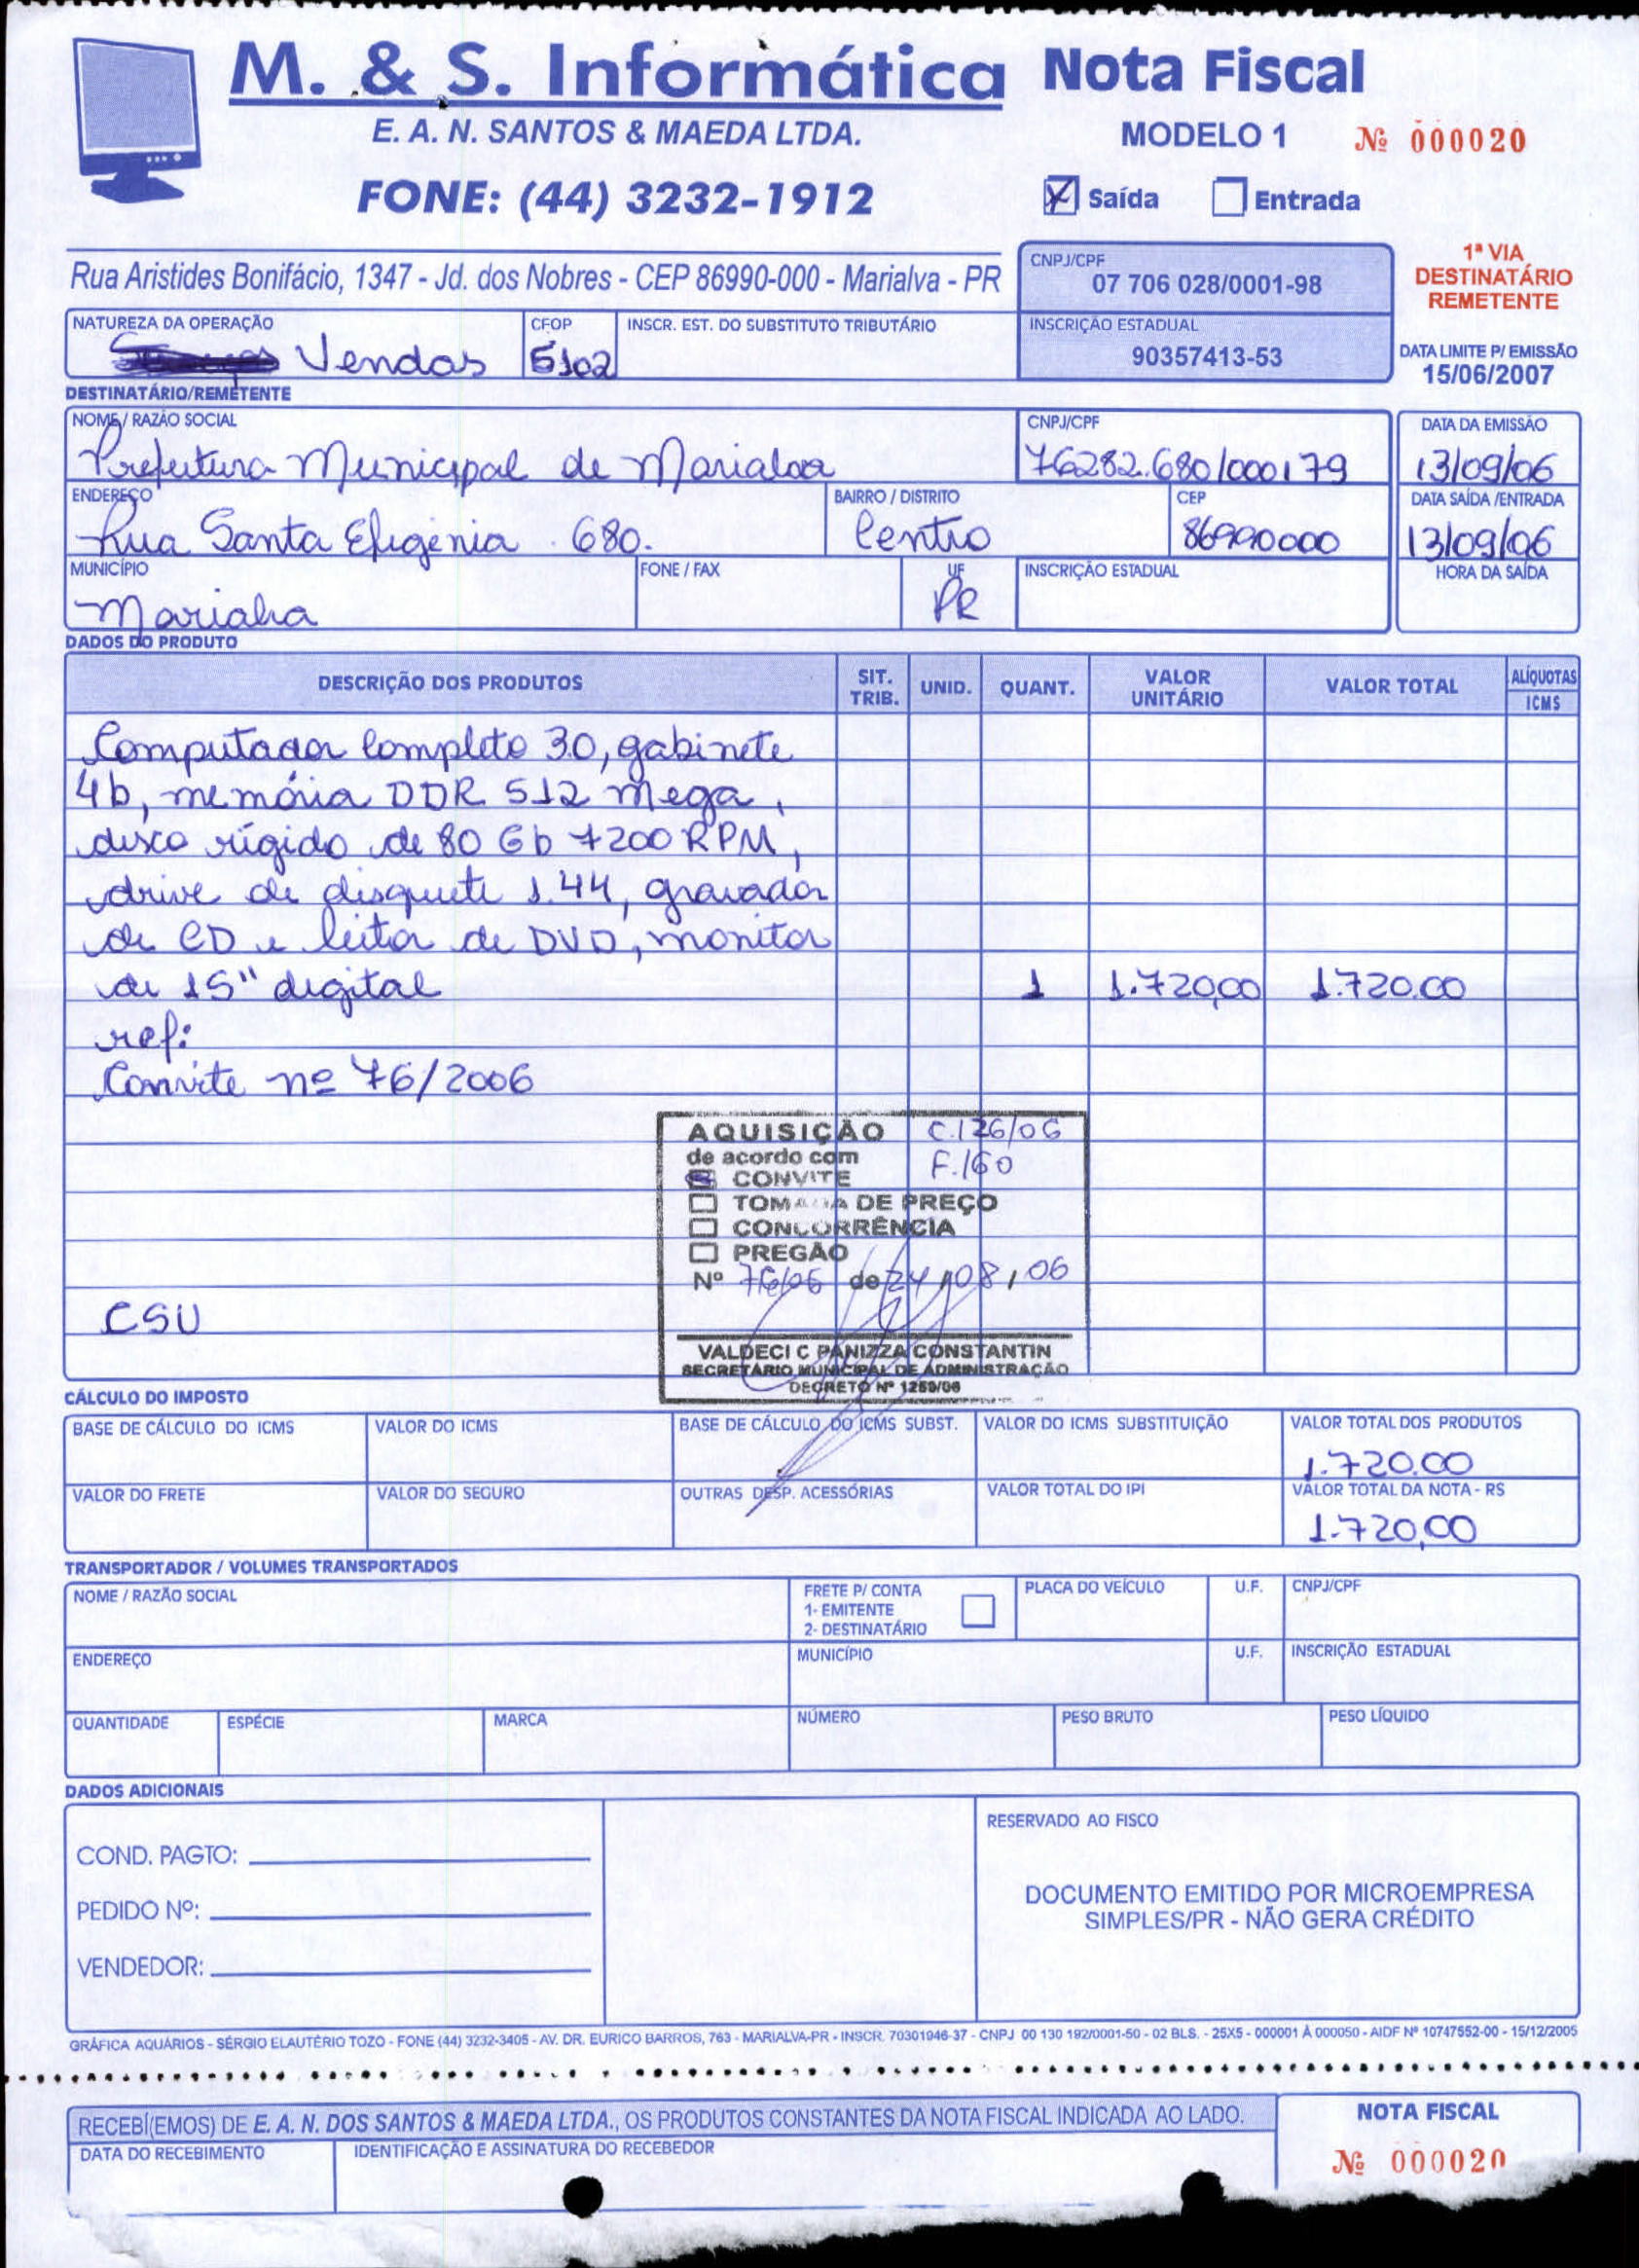 M. & S. Informática Nota Fiscal
E. A. N. SANTOS & MAEDA LTDA.
MODELO 1 Nº 000020
FONE: (44) 3232-1912
Saída Entrada
Rua Aristides Bonifácio, 1347 - Jd. dos Nobres - CEP 86990-000 - Marialva - PR
CNPJ/CPF
07 706 028/0001-98
1ª VIA
DESTINATÁRIO
REMETENTE
NATUREZA DA OPERAÇÃO CFOP INSCR. EST. DO SUBSTITUTO TRIBUTÁRIO INSCRIÇÃO ESTADUAL
Vendas 5102 90357413-53
DATA LIMITE P/ EMISSÃO
15/06/2007
DESTINATÁRIO/REMETENTE
NOME / RAZÃO SOCIAL CNPJ/CPF DATA DA EMISSÃO
Prefeitura Municipal de Marialva 76282.680/000179 13/09/06
ENDEREÇO BAIRRO / DISTRITO CEP DATA SAÍDA /ENTRADA
Rua Santa Efigênia 680. Centro 86990000 13/09/06
MUNICÍPIO FONE / FAX UF INSCRIÇÃO ESTADUAL HORA DA SAÍDA
Marialva PR
DADOS DO PRODUTO
DESCRIÇÃO DOS PRODUTOS SIT. TRIB. UNID. QUANT. VALOR UNITÁRIO VALOR TOTAL ALÍQUOTAS ICMS
Computador Completo 3.0, gabinete
4b, memória DDR 512 mega,
disco rígido de 80 Gb 7200 RPM,
drive de disquete 1.44, gravador
de CD e leitor de DVD, monitor
de 15" digital 1 1.720,00 1.720.00
ref:
Convite nº 76/2006
AQUISIÇÃO C.126/06
de acordo com F.160
CONVITE
TOMADA DE PREÇO
CONCORRÊNCIA
PREGÃO
Nº 76/06 de 24/08/06
CSU
VALDECI C PANIZZA CONSTANTIN
SECRETÁRIO MUNICIPAL DE ADMINISTRAÇÃO
DECRETO Nº 1259/06
CÁLCULO DO IMPOSTO
BASE DE CÁLCULO DO ICMS VALOR DO ICMS BASE DE CÁLCULO DO ICMS SUBST. VALOR DO ICMS SUBSTITUIÇÃO VALOR TOTAL DOS PRODUTOS
1.720.00
VALOR DO FRETE VALOR DO SEGURO OUTRAS DESP. ACESSÓRIAS VALOR TOTAL DO IPI VALOR TOTAL DA NOTA - RS
1.720,00
TRANSPORTADOR / VOLUMES TRANSPORTADOS
NOME / RAZÃO SOCIAL FRETE P/ CONTA PLACA DO VEÍCULO U.F. CNPJ/CPF
1- EMITENTE
2- DESTINATÁRIO
ENDEREÇO MUNICÍPIO U.F. INSCRIÇÃO ESTADUAL
QUANTIDADE ESPÉCIE MARCA NÚMERO PESO BRUTO PESO LÍQUIDO
DADOS ADICIONAIS
RESERVADO AO FISCO
COND. PAGTO:
PEDIDO Nº:
VENDEDOR:
DOCUMENTO EMITIDO POR MICROEMPRESA
SIMPLES/PR - NÃO GERA CRÉDITO
GRÁFICA AQUÁRIOS - SÉRGIO ELAUTÉRIO TOZO - FONE (44) 3232-3405 - AV. DR. EURICO BARROS, 763 - MARIALVA-PR - INSCR. 70301946-37 - CNPJ 00 130 192/0001-50 - 02 BLS. - 25X5 - 000001 À 000050 - AIDF Nº 10747552-00 - 15/12/2005
RECEBÍ(EMOS) DE E. A. N. DOS SANTOS & MAEDA LTDA., OS PRODUTOS CONSTANTES DA NOTA FISCAL INDICADA AO LADO.
NOTA FISCAL
DATA DO RECEBIMENTO IDENTIFICAÇÃO E ASSINATURA DO RECEBEDOR
Nº 000020